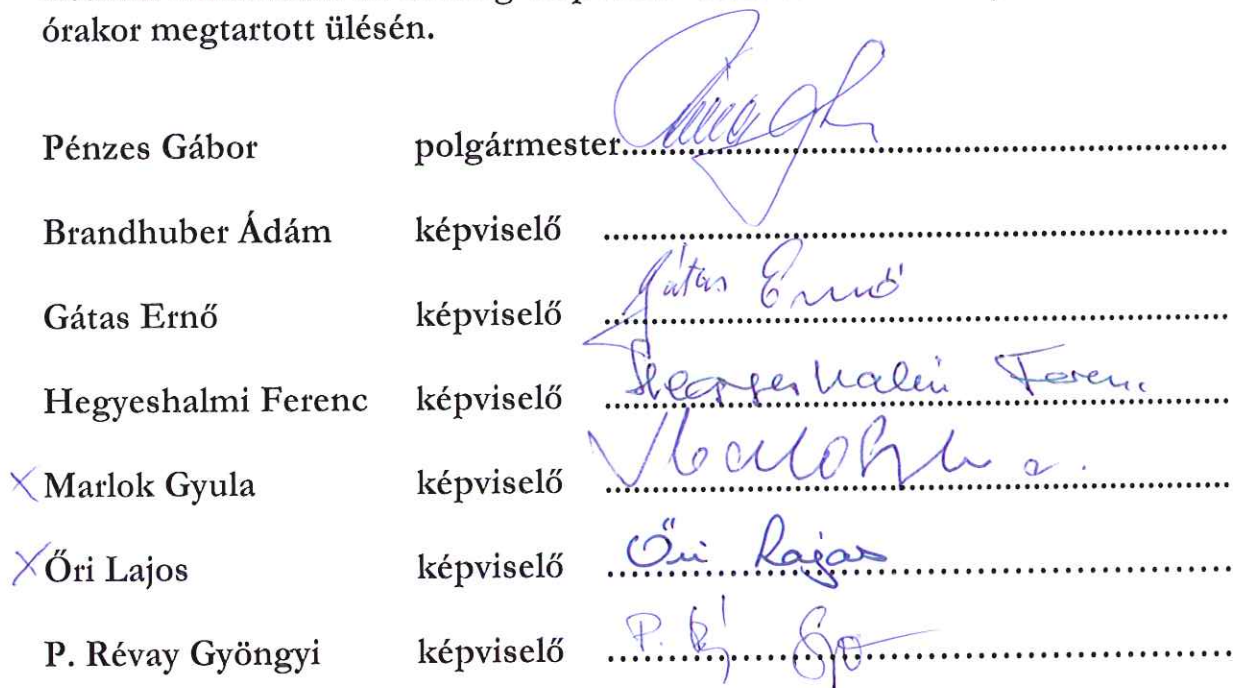 órakor megtartott ülésén.
Pénzes Gábor polgármester
Brandhuber Ádám képviselő
Gátas Ernő képviselő Gátas Ernő
Hegyeshalmi Ferenc képviselő Hegyeshalmi Ferenc
Marlok Gyula képviselő
Őri Lajos képviselő Őri Lajos
P. Révay Gyöngyi képviselő